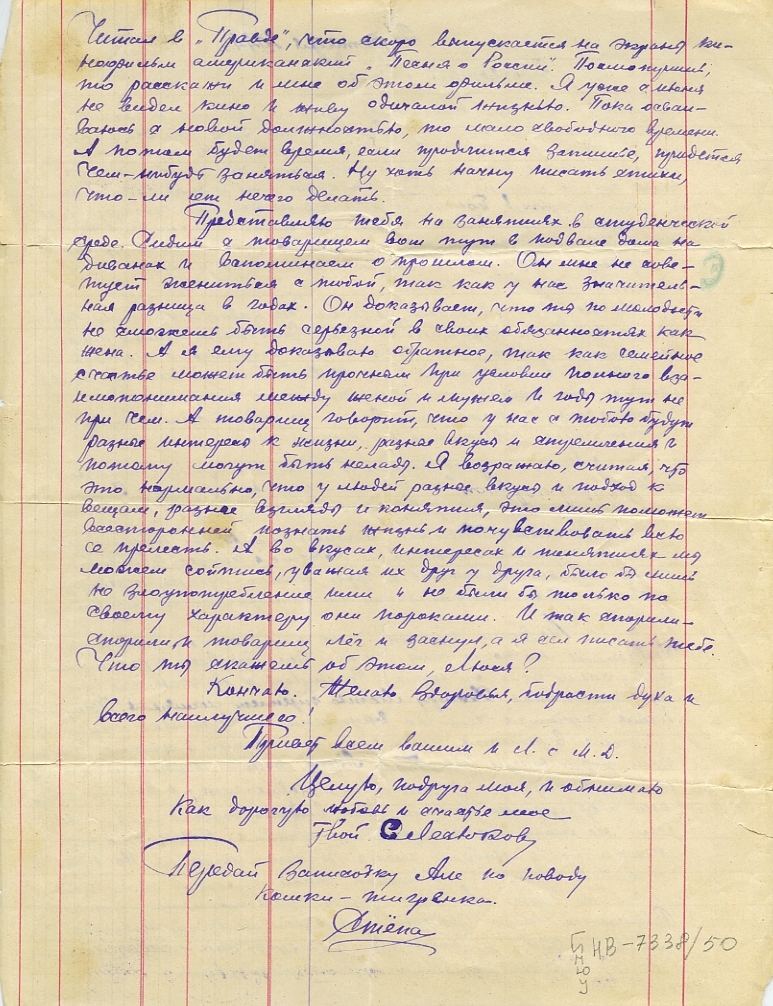 Читал в „Правде", что скоро выпускается на экраны ки-
нофильм американский „Песня о России". Посмотришь,
то расскажи и мне об этом фильме. Я уже с июня
не видел кино и живу одичалой жизнью. Пока осваи-
ваюсь с новой должностью, то мало свободного времени.
А потом будет время, если продлится затишье, придётся
чем-нибудь заняться. Ну хоть начну писать стихи,
что-ли от нечего делать.
Представляю тебя на занятиях в студенческой
среде. Сидим с товарищем вот тут в подвале дома на
диванах и вспоминаем о прошлом. Он мне не сове-
тует жениться с тобой, так как у нас значитель-
ная разница в годах. Он доказывает, что ты по молодости
не сможешь быть серьезной в своих обязанностях как
жена. А я ему доказываю обратное, так как семейное
счастье может быть прочным при условии полного вза-
имопонимания между женой и мужем и годы тут не
при чем. А товарищ говорит, что у нас с тобою будут
разные интересы к жизни, разные вкусы и стремления и
потому могут быть нелады. Я возражаю, считая, что
это нормально, что у людей разные вкусы и подход к
вещам, разные взгляды и понятия, это лишь поможет
всесторонней познать жизнь и почувствовать всю
ее прелесть. А во вкусах, интересах и понятиях мы
можем сойтись, уважая их друг у друга, было бы лишь
не злоупотребление ими и не были бы только по
своему характеру они пороками. И так спорили-
спорили и товарищ лёг и заснул, а я сел писать тебе.
Что ты скажешь об этом, Люся?
Кончаю. Желаю здоровья, бодрости духа и
всего наилучшего!
Привет всем вашим и Л. с М.Д.
Целую, подруга моя, и обнимаю
как дорогую любовь и счастье мое
Твой С
Передай записочку Але по поводу
кошки-тигренка.
Стёпа
НВ-7338/50